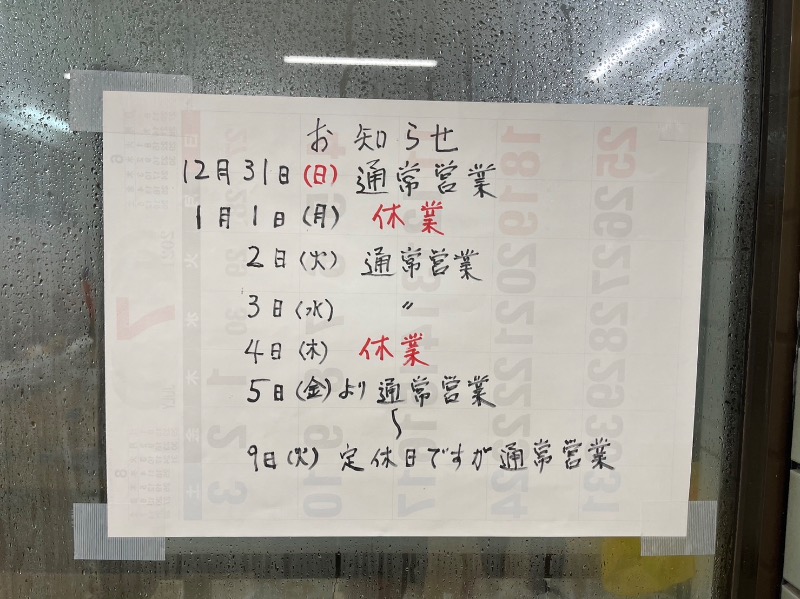 お知らせ
12月31日(日) 通常営業
1月1日(月) 休業
2日(火) 通常営業
3日(水) 〃
4日(木) 休業
5日(金)より通常営業
〜
9日(火) 定休日ですが通常営業